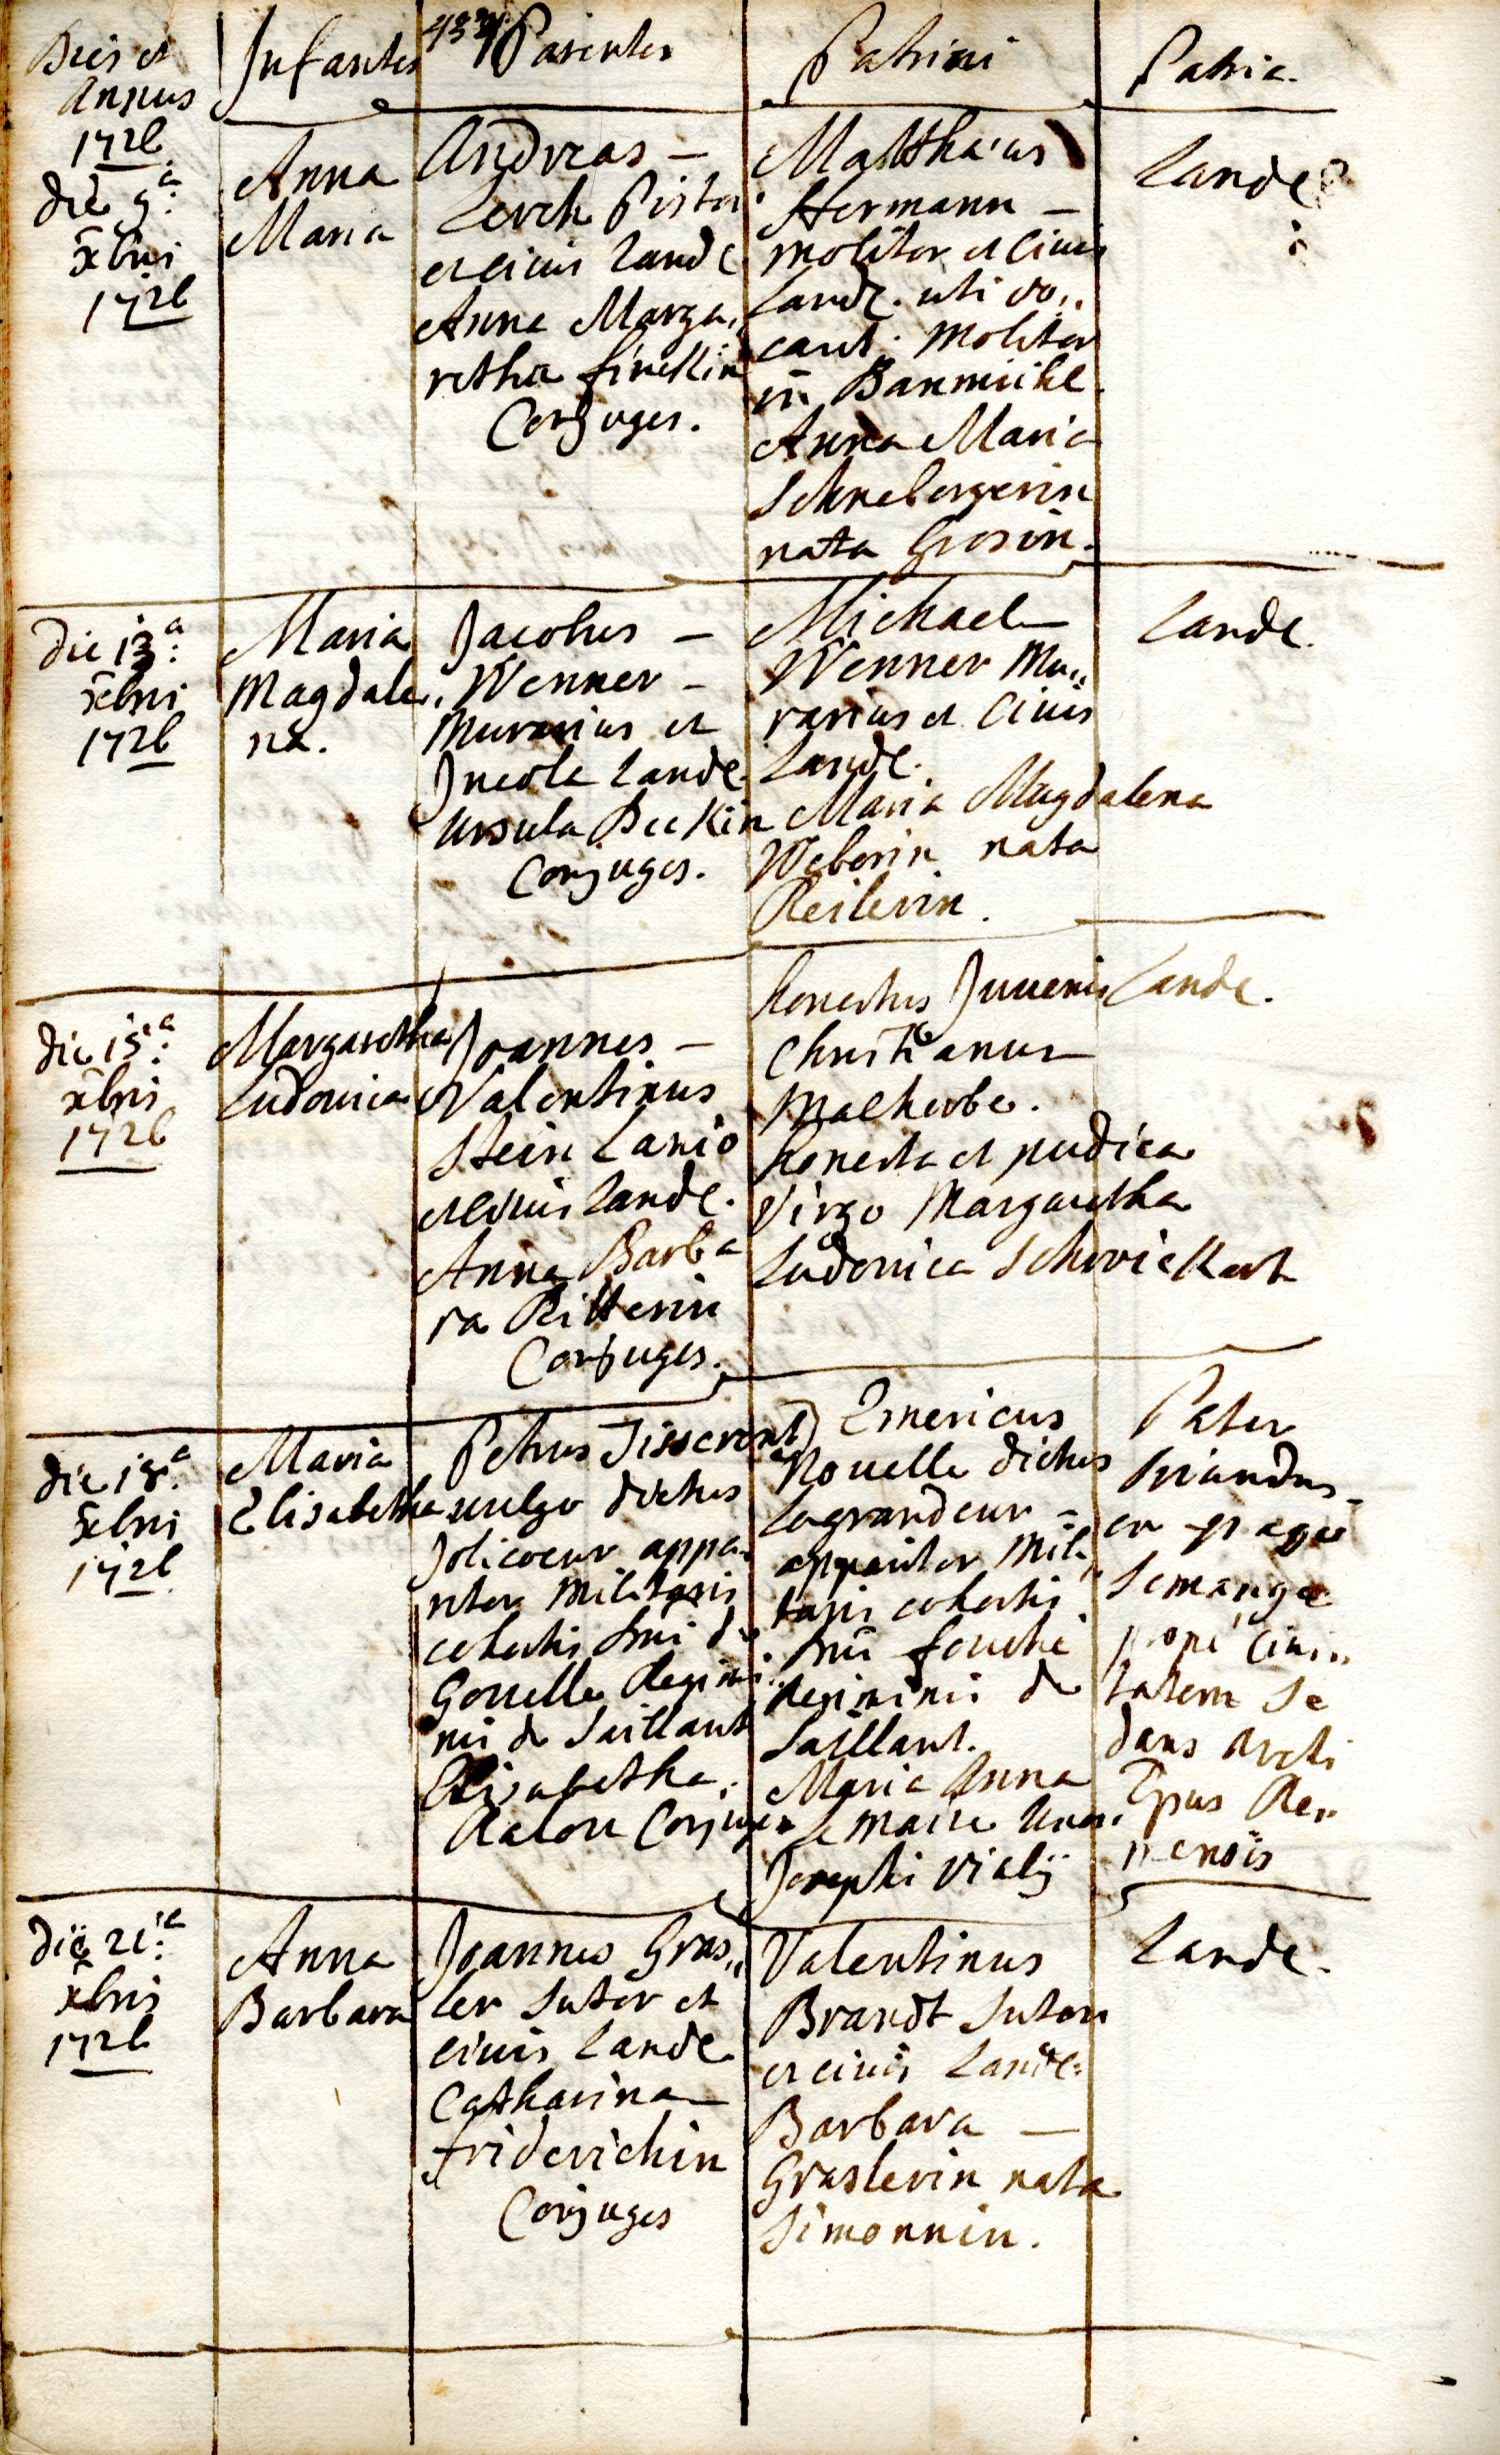 Dies et
Annus
1726
Infantes
433
Parentes
Patrini
Patria.
die 9.a
xbris
1726
Anna
Maria
Andreas -
Lerch Pistor
et civis Landae
Anna Marga„
retha finckin
Conjuges.
Matthaeus
Hermann -
molitor et Civis
Landae. uti vo„
cant. Molitor
in Banmühl.
Anna Maria
Schnebergerin
nata Grosin.
Landae
die 13.a
xbris
1726
Maria
Magdale„
na.
Jacobus -
Wenner -
Murarius et
Incola Landae.
Ursula Beckin
Conjuges.
Michael -
Wenner Mu„
rarius et Civis
Landae.
Maria Magdalena
Weberin nata
Reilerin.
Landae.
die 15.a
xbris
1726
Margaretha
Ludovica
Joannes -
Valentinus
Stein Lanio
et civis Landae.
Anna Barba
ra Ritterin
Conjuges.
honestus Juvenis
Christianus
Malherbe.
honesta et pudica
Virgo Margaretha
Ludovica Schwickart
Landae.
die 18.a
xbris
1726
Maria
Elisabetha
Petrus Tisserent
vulgo dictus
Jolicoeur appa„
ritor Militaris
cohortis Dni de
Gouelle Regimi„
nis de Saillant
Elisabetha
Ralon Conjuges
Emericus
Nouelle dictus
Lagrandeur -
apparitor Mili„
taris cohortis
Dni fouché
Regiminis de
Saillant.
Maria Anna
Le Maire Uxor
Josephi Vialij
Pater
oriundus
ex pago
Semange
prope Civi„
tatem Se
dans Archi
Epus Re„
mensis
die 21.a
xbris
1726
Anna
Barbara
Joannes Gras„
ler Sutor et
civis Landae
Catharina -
friderichin
Conjuges
Valentinus
Brandt Sutor
et civis Landae.
Barbara -
Graslerin nata
Simonnin.
Landae.